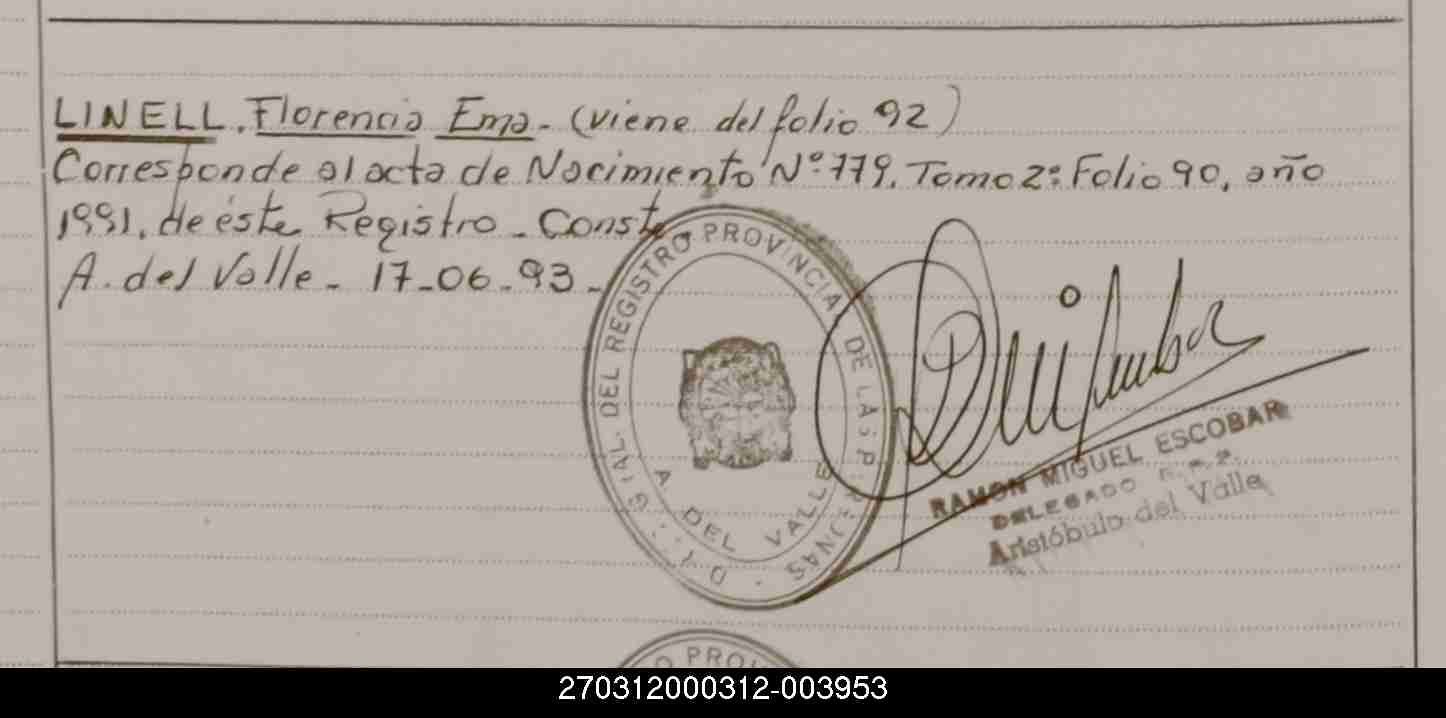 LINELL, Florencia Ema - (viene del folio 92)
Corresponde al acta de Nacimiento Nº 779, Tomo 2º Folio 90, año
1991, de éste Registro - Conste
A. del Valle - 17-06-93 -
GRAL. DEL REGISTRO PROVINCIAL DE LAS P
A DEL VALLE
RAMON MIGUEL ESCOBAR
DELEGADO
Aristóbulo del Valle
PROV
270312000312-003953